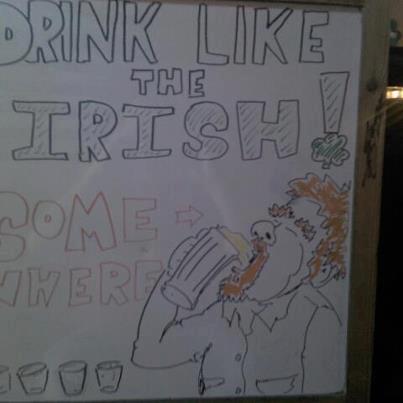 DRINK LIKE
THE
IRISH!
SOME
WHERE